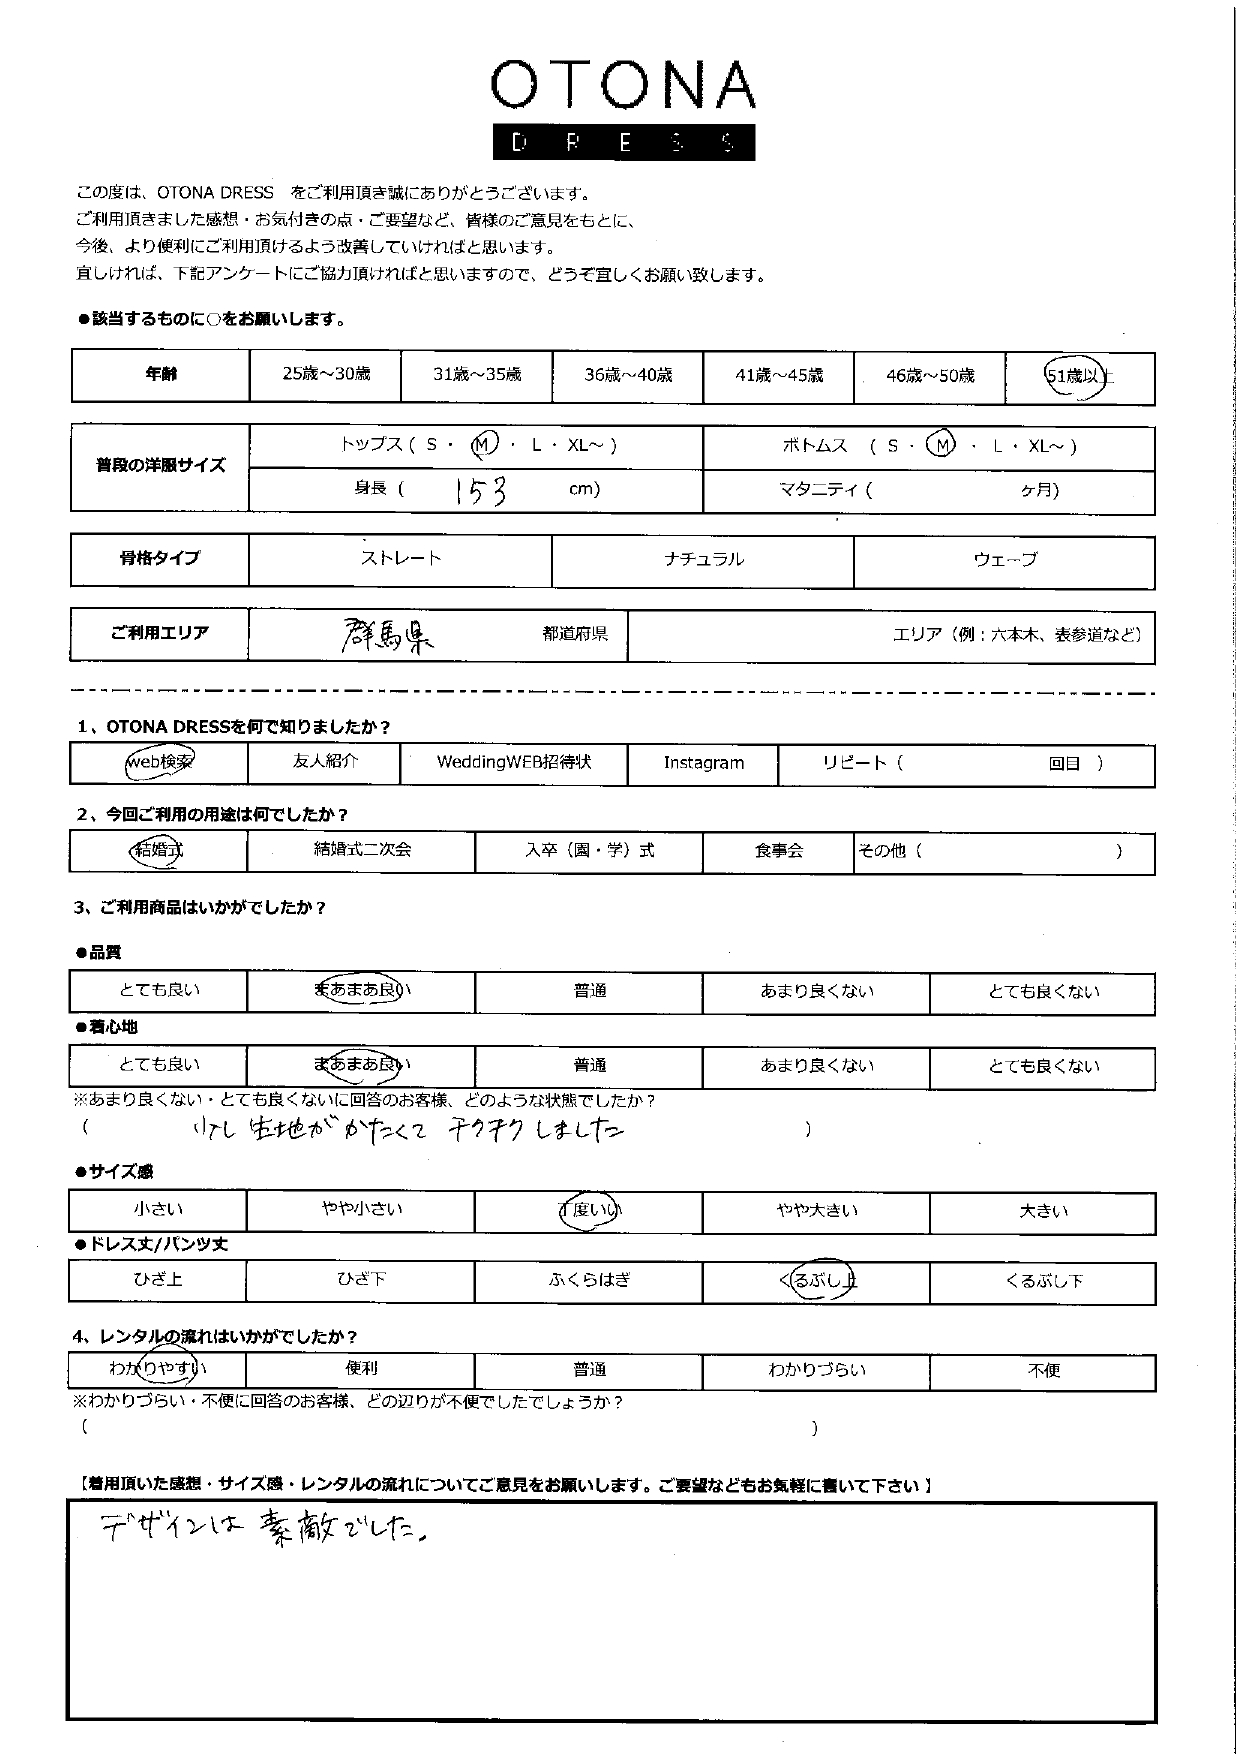 OTONA
DRESS
この度は、OTONA DRESS をご利用頂き誠にありがとうございます。
ご利用頂きました感想・お気付きの点・ご要望など、皆様のご意見をもとに、
今後、より便利にご利用頂けるよう改善していければと思います。
宜しければ、下記アンケートにご協力頂ければと思いますので、どうぞ宜しくお願い致します。
●該当するものに○をお願いします。
年齢 25歳～30歳 31歳～35歳 36歳～40歳 41歳～45歳 46歳～50歳 51歳以上
普段の洋服サイズ トップス ( S ・ M ・ L ・ XL～ ) ボトムス ( S ・ M ・ L ・ XL～ )
身長 ( 153 cm) マタニティ ( ヶ月)
骨格タイプ ストレート ナチュラル ウェーブ
ご利用エリア 群馬県 都道府県 エリア（例：六本木、表参道など）
1、OTONA DRESSを何で知りましたか？
web検索 友人紹介 WeddingWEB招待状 Instagram リピート（ 回目 ）
2、今回ご利用の用途は何でしたか？
結婚式 結婚式二次会 入卒（園・学）式 食事会 その他（ ）
3、ご利用商品はいかがでしたか？
●品質
とても良い まあまあ良い 普通 あまり良くない とても良くない
●着心地
とても良い まあまあ良い 普通 あまり良くない とても良くない
※あまり良くない・とても良くないに回答のお客様、どのような状態でしたか？
( 少し 生地が かたくて チクチク しました )
●サイズ感
小さい やや小さい 丁度いい やや大きい 大きい
●ドレス丈/パンツ丈
ひざ上 ひざ下 ふくらはぎ くるぶし上 くるぶし下
4、レンタルの流れはいかがでしたか？
わかりやすい 便利 普通 わかりづらい 不便
※わかりづらい・不便に回答のお客様、どの辺りが不便でしたでしょうか？
( )
【着用頂いた感想・サイズ感・レンタルの流れについてご意見をお願いします。ご要望などもお気軽に書いて下さい】
デザインは 素敵でした。